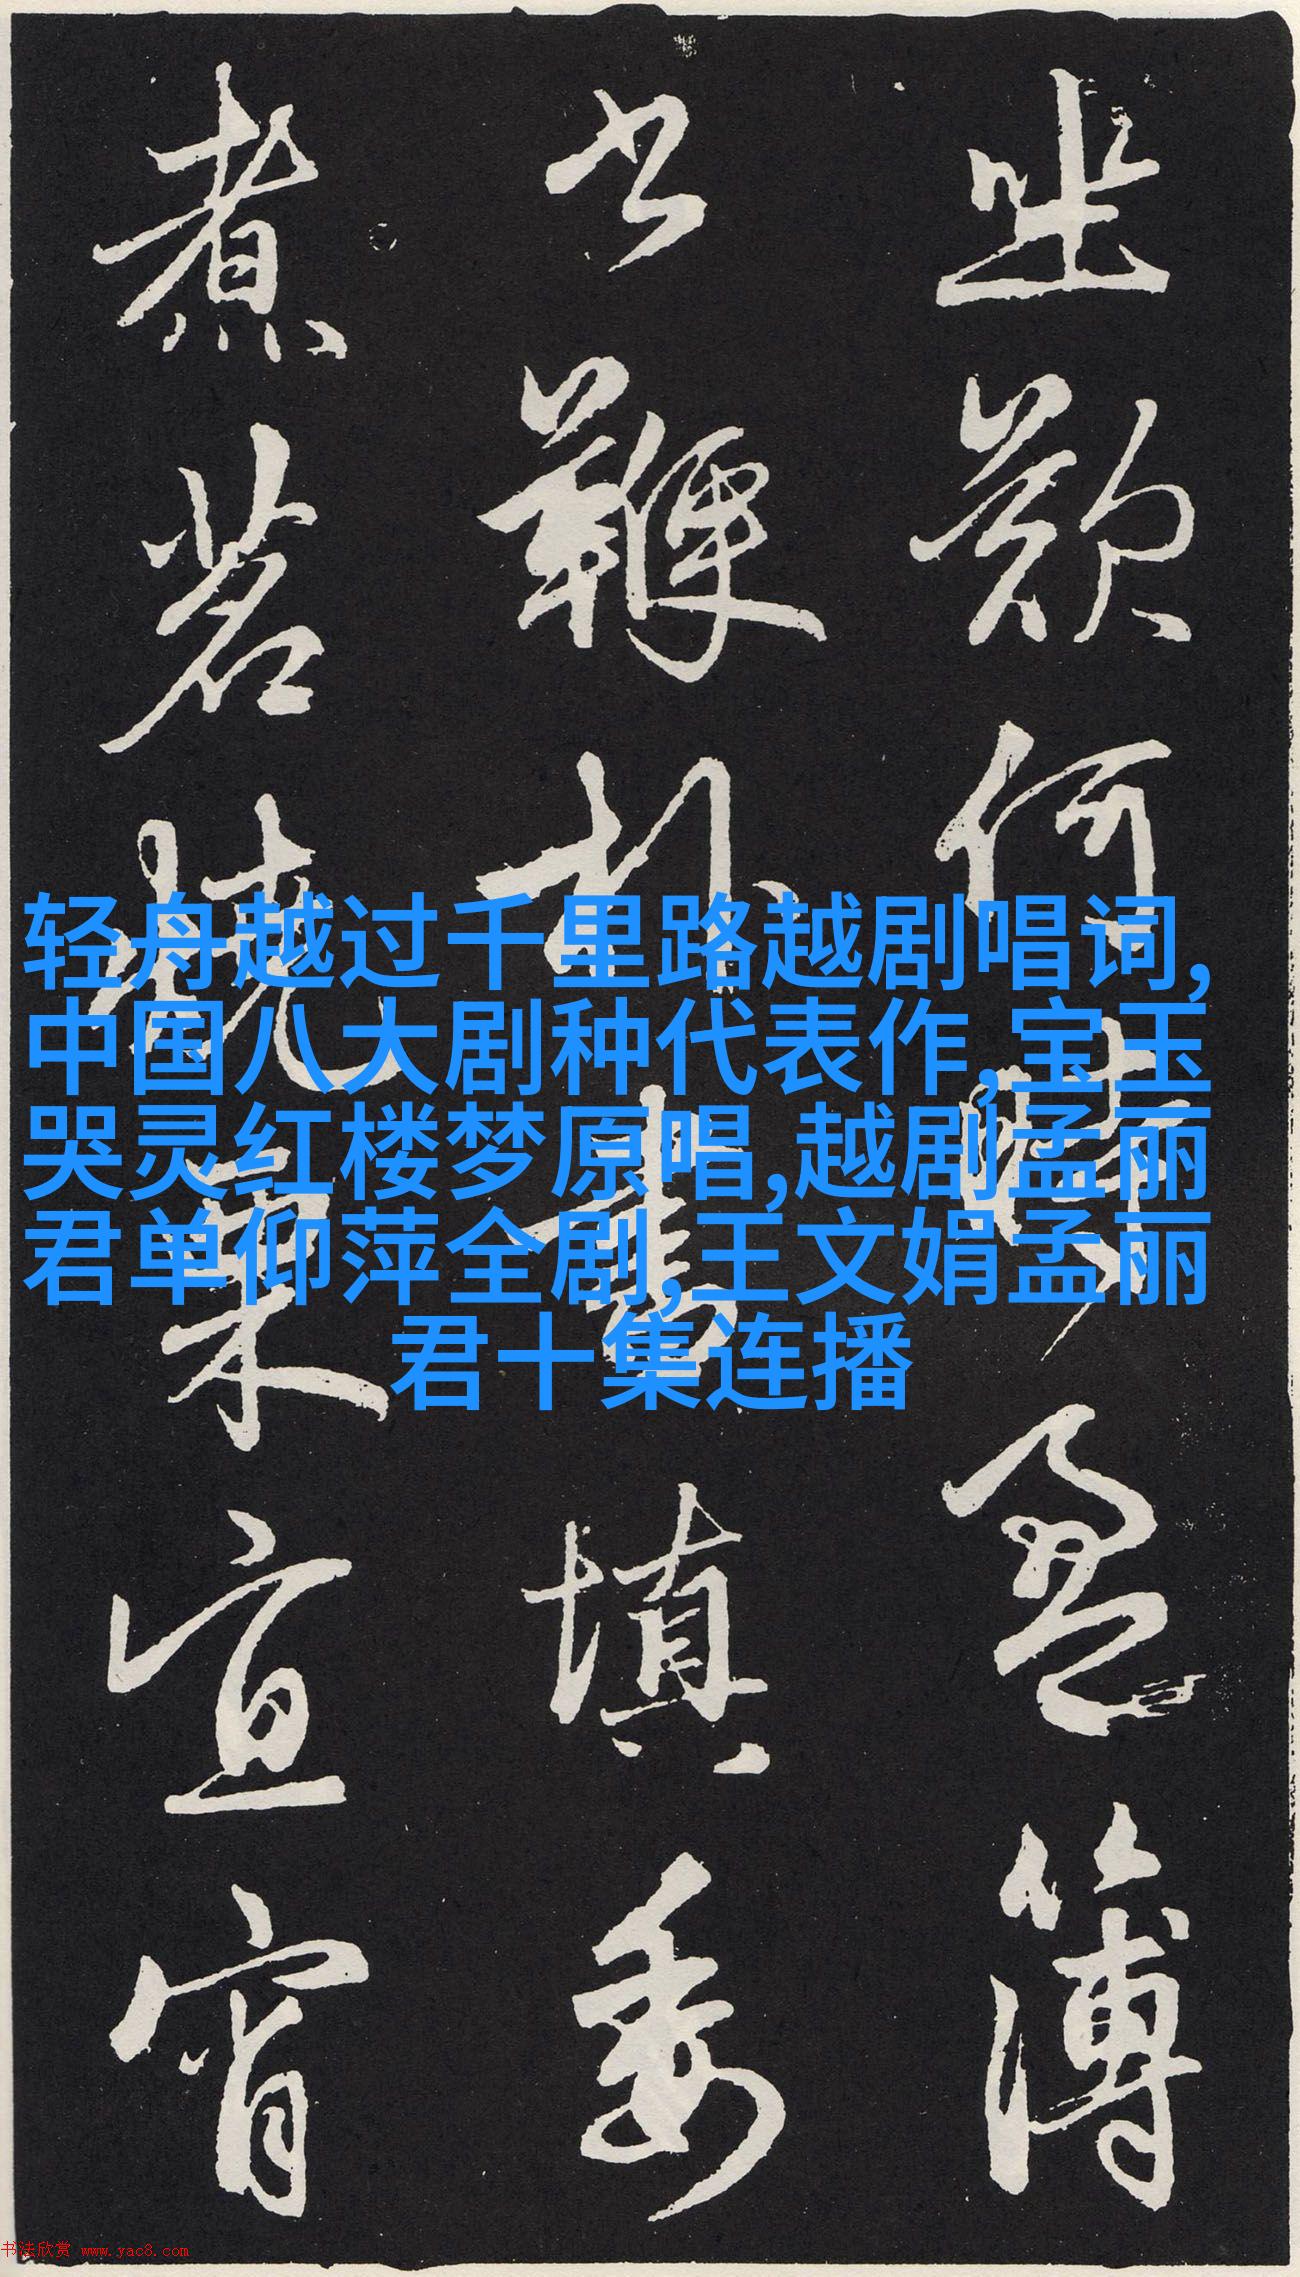 何盈簿
書鞭扑晝填委
煮茗燒栗宜宵
轻舟越过千里路越剧唱词,
中国八大剧种代表作,宝玉
哭灵红楼梦原唱,越剧孟丽
君单仰萍全剧,王文娟孟丽
君十集连播
书法欣赏 www.yac8.com